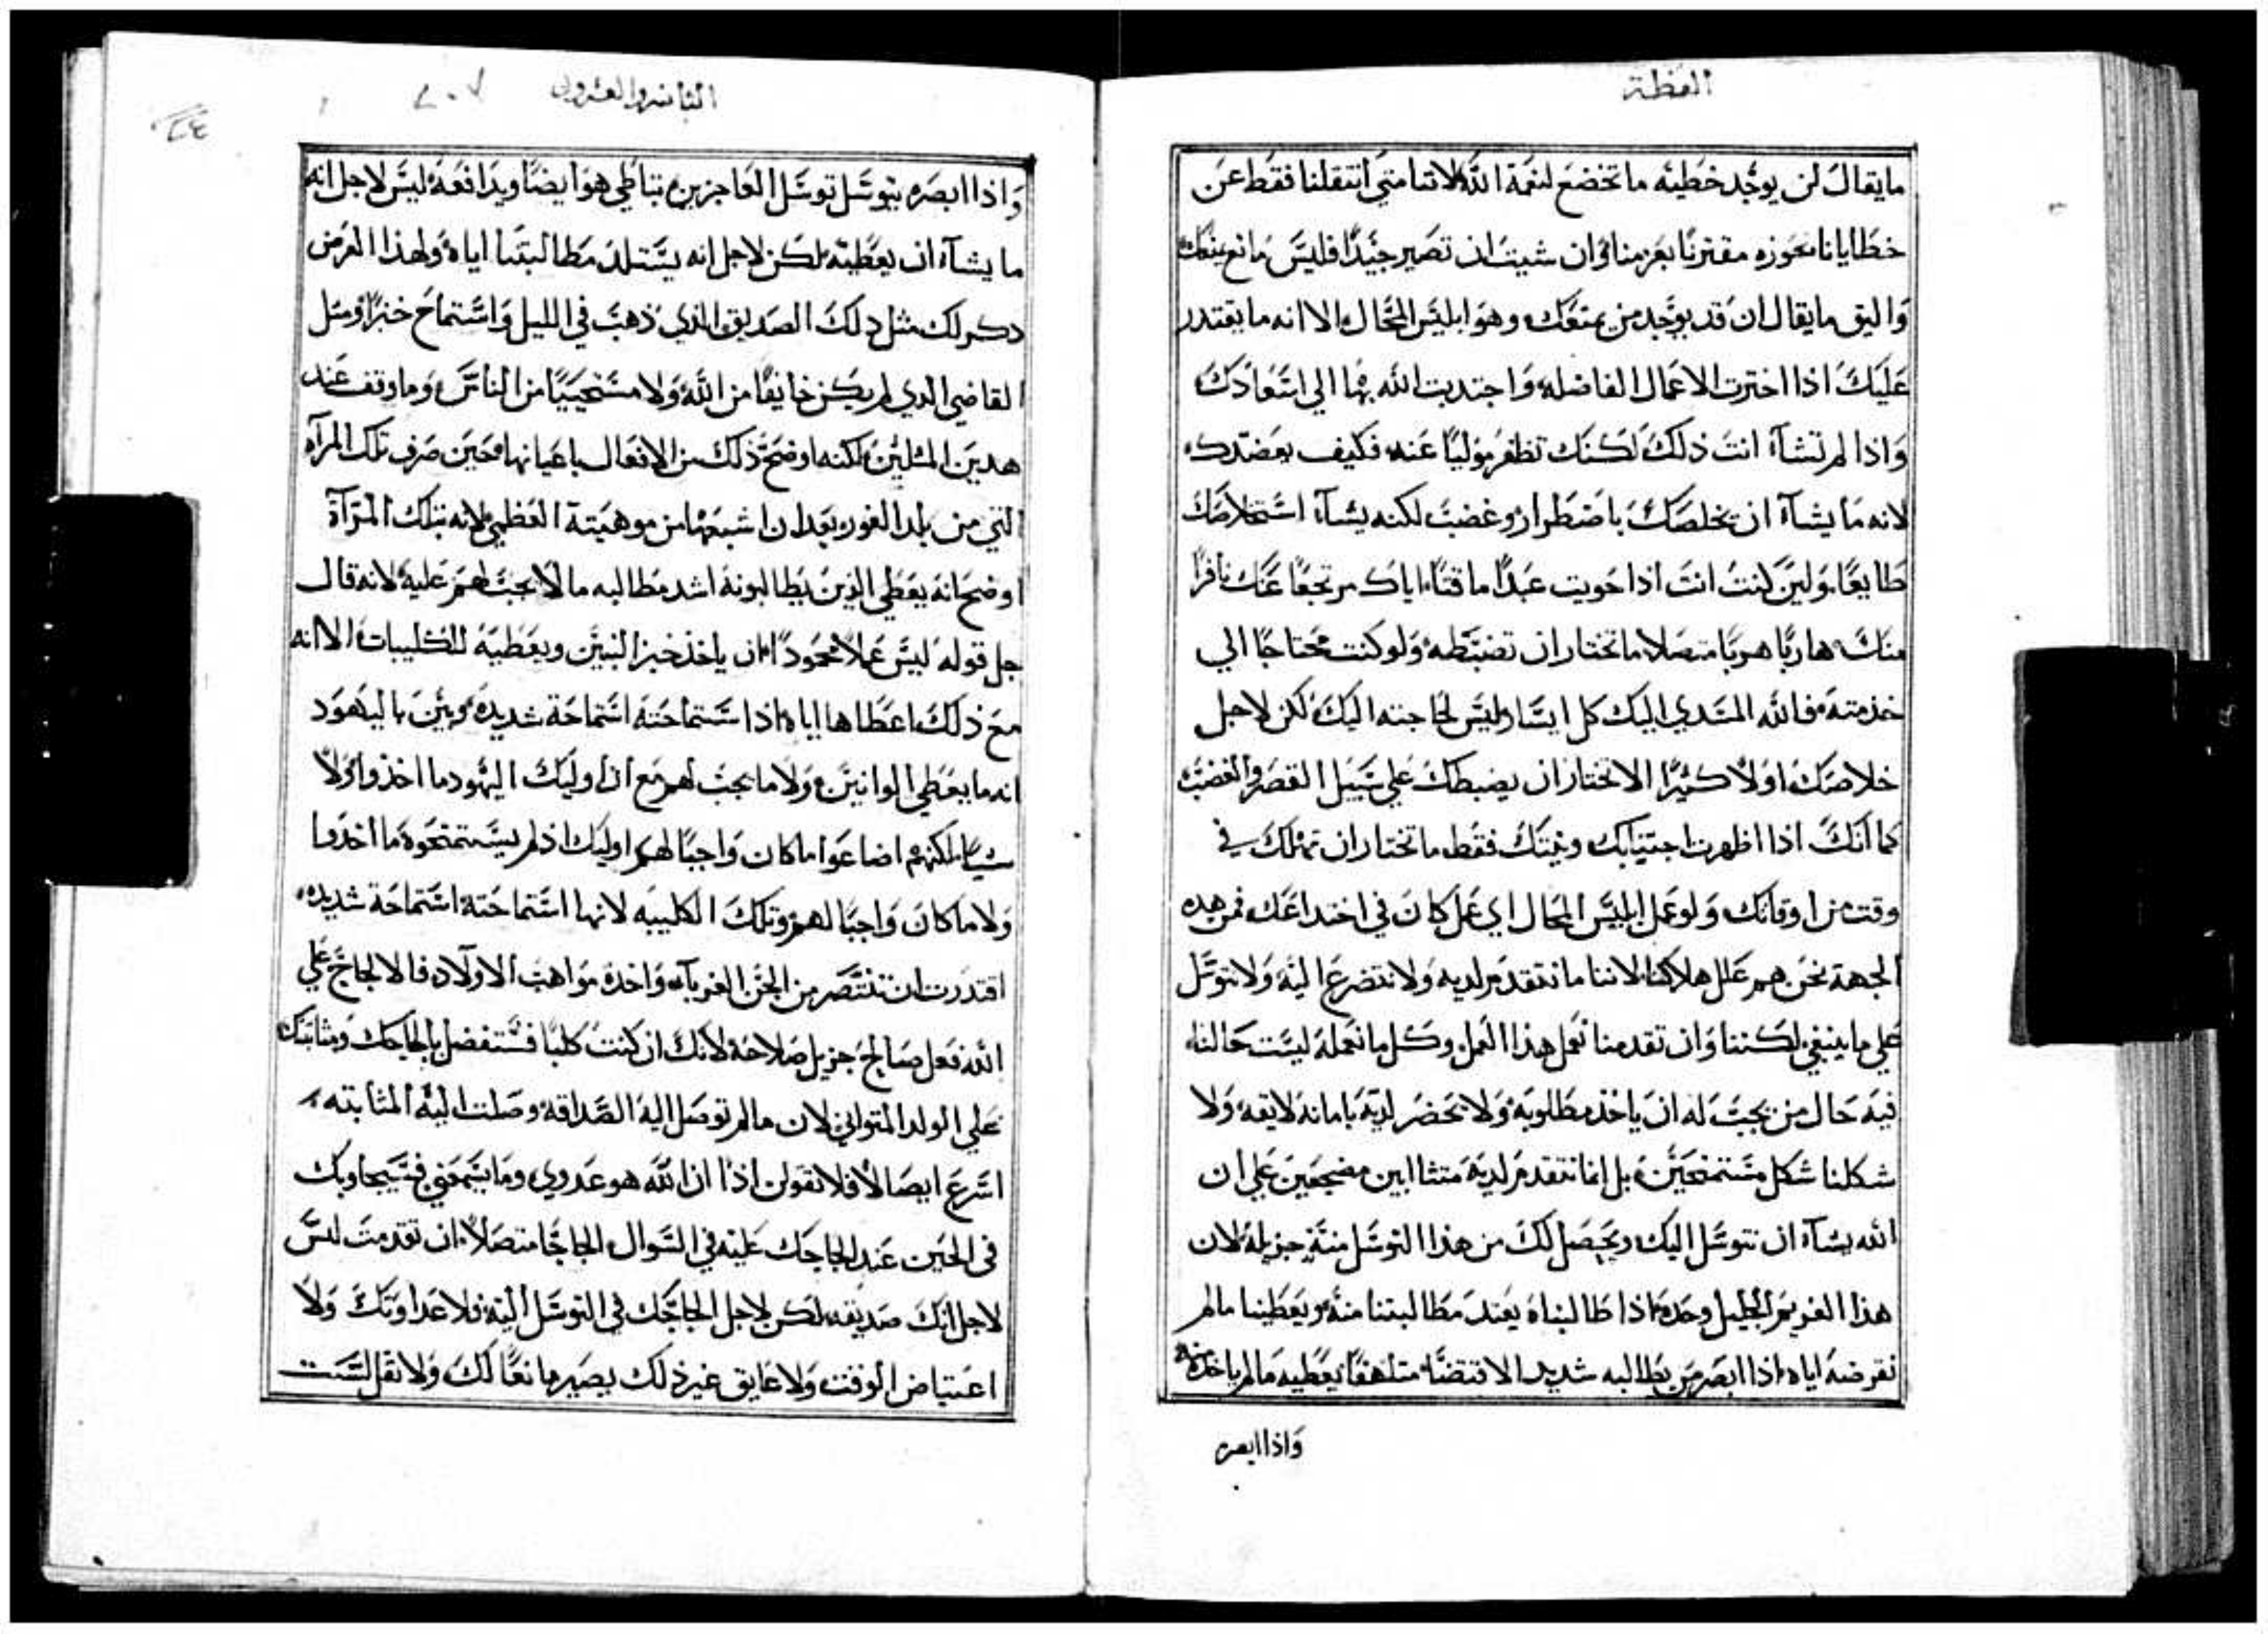 العظة
ما يقال لن يوجد خطيه ما تخضع لنعمة الله لاننا متي انتقلنا فقط عن
خطايانا نحوزه مقترنًا بعزمنا وان شيت ان تصير جيدًا فليس مانع يمنعك
واليق ما يقال ان قد يوجد من يمنعك وهو ابليس المحال الا انه ما يقتدر
عليك اذا اخترت الاعمال الفاضله واجتدبت الله بها الي اسعادك
واذا لم تشآ انت ذلك لكنك تظفر موليًا عنه فكيف يعضدك
لانه ما يشآ ان يخلصك باضطرار وغضب لكنه يشآ استخلاصك
طايعًا ولين كنت انت اذا حويت عبدًا ماقتًا اياك مرتجعًا عنك نافرًا
منك هاربًا هربًا متصلا ما تختار ان تضبطه ولو كنت محتاجًا الي
خدمته فالله المسدي اليك كل ايثار ليس لحاجته اليك لكن لاجل
خلاصك اولا كثيرًا الا تختار ان يضبطك علي سبيل القصر والغضب
كما انك اذا اظهرت اجتيابك ونيتك فقط ما تختار ان تهلك في
وقت من اوقاتك ولو عمل ابليس المحال اي عمل كان في اختداعك فمن هده
الجهة نحن هم علل هلاكنا لاننا ما نتقدم لديه ولا نتضرع اليه ولا نتوسل
علي ما ينبغي لكننا وان تقدمنا نعمل هذا العمل وكل ما نعمله ليست حالنا
فيه حال من يجب له ان ياخذ مطلوبه ولا نحضر لديه بامانه لايقه ولا
شكلنا شكل مستمنحين بل انما نتقدم لديه متثاابين مضجعين علي ان
الله يشآ ان نتوسل اليك ويحصل لك من هذا التوسل منة جزيلة لان
هذا الغريم الجليل وحده اذا طالبناه يعتد مطالبتنا منه ويعطينا ما لم
نقرضه اياه اذا ابصر من يطالبه شديد الاقتضا متلهفًا يعطيه ما لم ياخد منه
واذا ابصره
الثانيه والعشرون
واذا ابصره يتوسل توسل العاجزين يتباطي هو ايضًا ويدافعه ليس لاجل انه
ما يشآ ان يعطيه لكن لاجل انه يستلد مطالبتنا اياه ولهذا الغرض
دكر لك مثل دلك الصديق الذي ذهب في الليل واستماح خبزًا ومثل
القاضي الدي لم يكن خايفًا من الله ولا مستحييًا من الناس وما وقف عند
هدين المثلين لكنه اوضح ذلك من الافعال باعيانها وحين صرف تلك المرآه
التي من بلد الغور بعد ان اشبعها من موهبته العظمي لانه بتلك المرآة
اوضح انه يعطي الذين يطالبونه اشد مطالبه ما لا يجب لهم عليه لانه قال
جل قوله ليس عملا محمودًا ان ياخذ خبز البنين ويعطيه للكليبات الا انه
مع ذلك اعطاها اياه اذا ستماحته استماحة شديدة وبين باليهود
انه ما يعطي الوانين ولا ما يجب لهم مع ان اوليك اليهود ما اخذوا ولا
شيًا لكنهم اضاعوا ما كان واجبًا لهم اوليك اذ لم يستمنحوه ما اخذوا
ولا ما كان واجبًا لهم وتلك الكليبه لانها استماحته استماحة شديده
اقتدرت ان تنتصر من الجن الغربآ واخدة مواهب الاولاد فالالجاج علي
الله فعل صالح جزيل صلاحه لانك ان كنت كلبًا فستفضل بالجاجك ومثابتك
علي الولد المتواني لان ما لم توصل اليه الصداقه وصلت اليه المثابته
اسرع ايصالا فلا تقولن اذًا ان الله هو عدوي وما يسمعني فسيجاوبك
في الحين عند الجاجك عليه في السوال الجاجًا متصلا ان تقدمت ليس
لاجل انك صديقه لكن لاجل الجاجك في التوسل اليه فلا عداوتك ولا
اعتياض الوقت ولا عايق غير ذلك يصير مانعًا لك ولا تقل لست